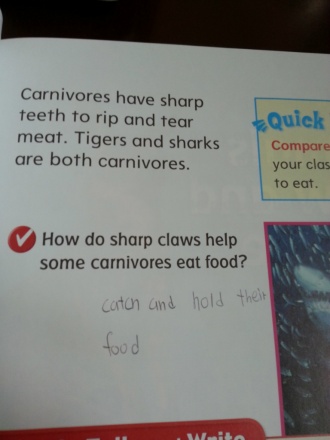 Carnivores have sharp
teeth to rip and tear
meat. Tigers and sharks
are both carnivores.
Quick
Compare
your clas
to eat.
How do sharp claws help
some carnivores eat food?
catch and hold their
food
Write